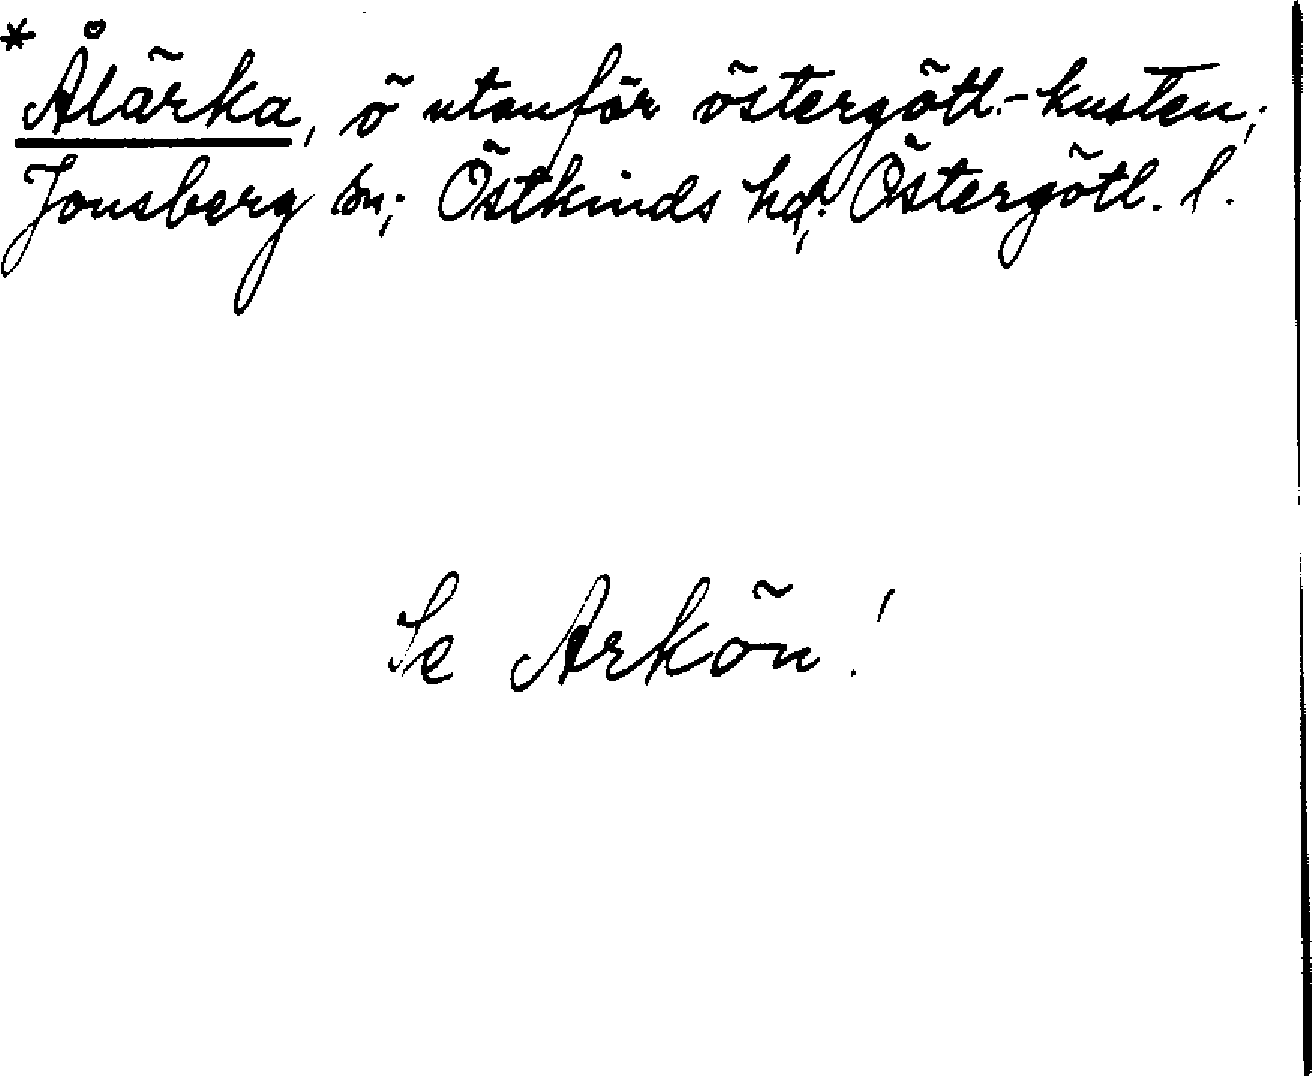 * Ålärka, ö utanför östergötl.-kusten;
Jonsberg sn; Östkinds hd; Östergötl. l.
Se Arkön!